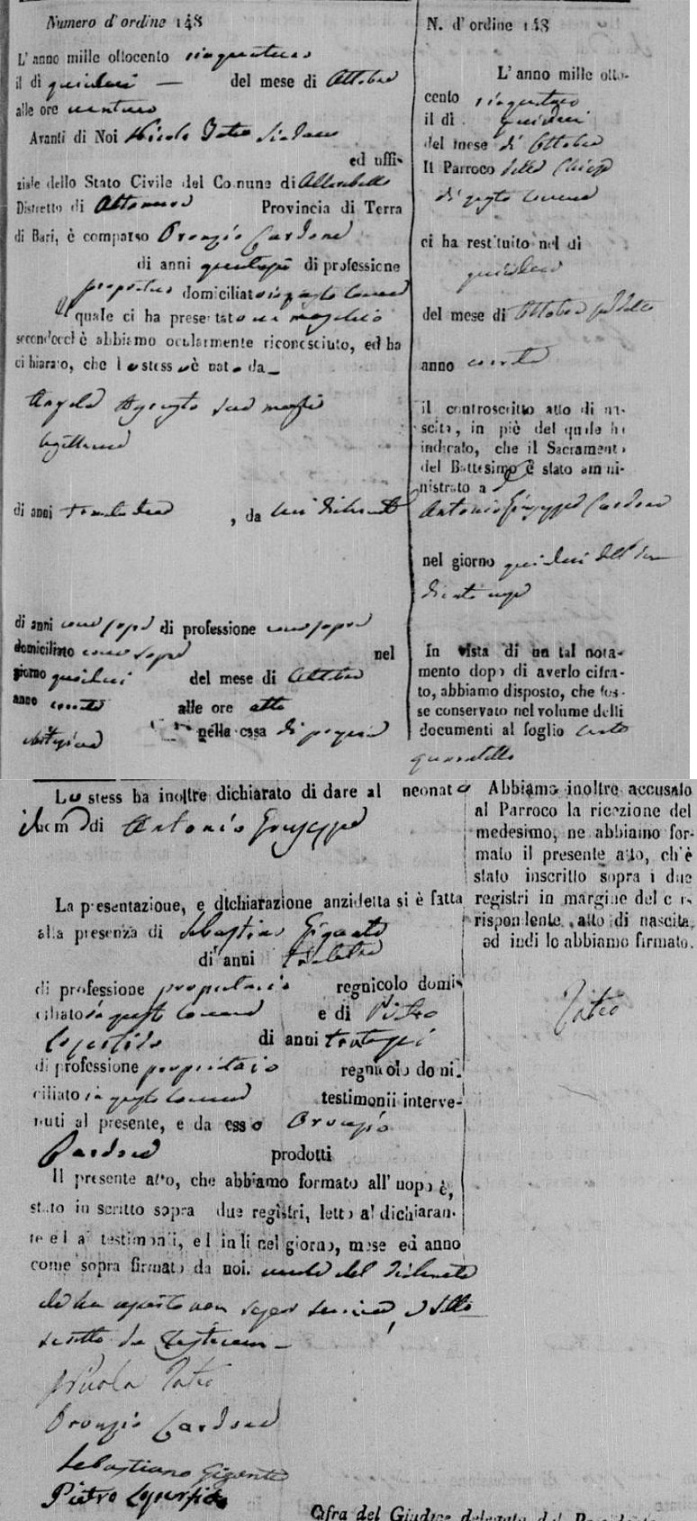 Numero d'ordine 148
L'anno mille ottocento cinquantuno
il dì quindici — del mese di Ottobre
alle ore ventuno
Avanti di Noi Nicola Tateo Sindaco
ed uffi-
ziale dello Stato Civile del Comune di Alberobello
Distretto di Altamura Provincia di Terra
di Bari, è comparso Oronzio Cardone
di anni di professione
proprietario domiciliato in questo Comune
il quale ci ha presentato un maschio
secondocchè abbiamo ocularmente riconosciuto, ed ha
dichiarato, che lo stesso è nato da
Angela sua moglie
legittima
di anni , da lui dichiarante
di anni come sopra di professione come sopra
domiciliato come sopra nel
giorno quindici del mese di Ottobre
anno corrente alle ore otto
nella casa di propria
abitazione
Lo stess ha inoltre dichiarato di dare al neonato
il nome di Antonio Giuseppe
La presentazione, e dichiarazione anzidetta si è fatta
alla presenza di Sebastiano Gigante
di anni
di professione proprietario regnicolo domi-
ciliato in questo Comune e di Pietro
Lopurfido di anni trentasei
di professione proprietario regnicolo domi-
ciliato in questo Comune testimonii interve-
nuti al presente, e da esso Oronzio
Cardone prodotti
Il presente atto, che abbiamo formato all'uopo è,
stato inscritto sopra due registri, letto al dichiaran-
te ed ai testimonii, ed indi nel giorno, mese ed anno
come sopra firmato da noi.
Nicola Tateo
Oronzio Cardone
Sebastiano Gigante
Pietro Lopurfido
N. d'ordine 148
L'anno mille otto-
cento cinquantuno
il dì quindici
del mese di Ottobre
Il Parroco della Chiesa
di questo Comune
ci ha restituito nel dì
quindici
del mese di Ottobre
anno corrente
il controscritto atto di na-
scita, in piè del quale ha
indicato, che il Sacramento
del Battesimo è stato ammi-
nistrato a
Antonio Giuseppe Cardone
nel giorno quindici
In vista di un tal nota-
mento dopo di averlo cifra-
to, abbiamo disposto, che fos-
se conservato nel volume delli
documenti al foglio cento
Abbiamo inoltre accusato
al Parroco la ricezione del
medesimo, ne abbiamo for-
mato il presente atto, ch'è
stato inscritto sopra i due
registri in margine del cor-
rispondente atto di nascita,
ed indi lo abbiamo firmato.
Tateo
Cifra del Giudice delegato dal Presidente